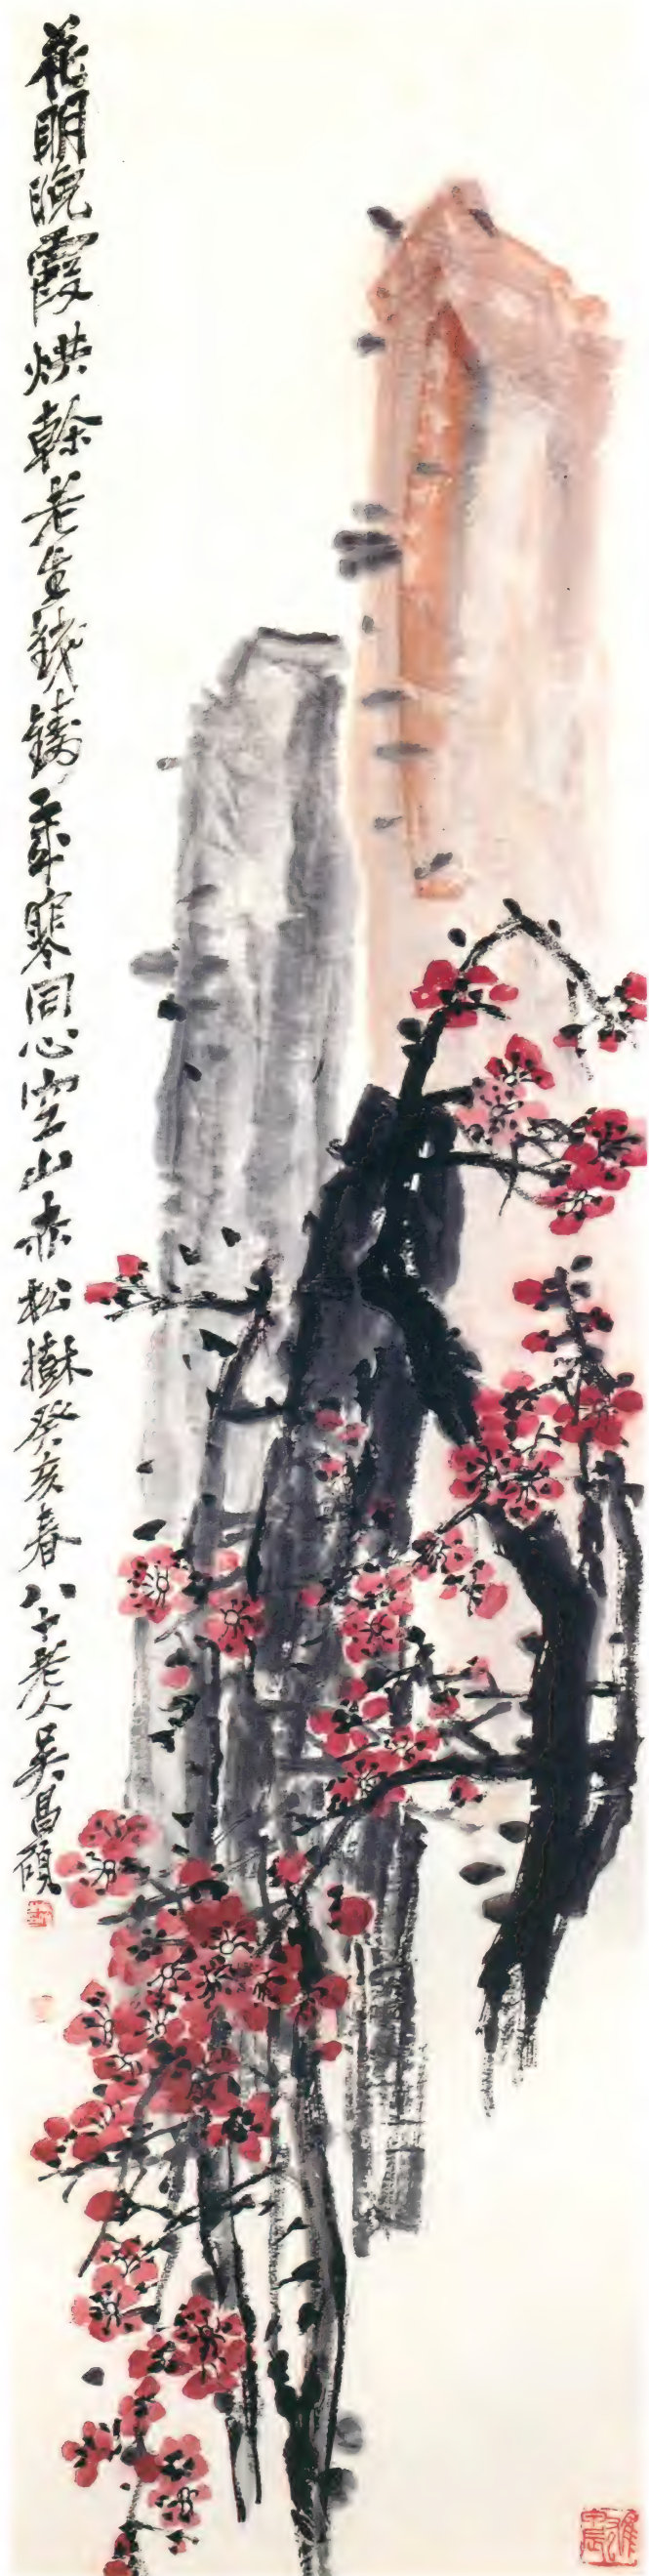 花明晚霞烘幹老生鐵鑄歲寒同心空山赤松樹癸亥春八十老人吳昌碩